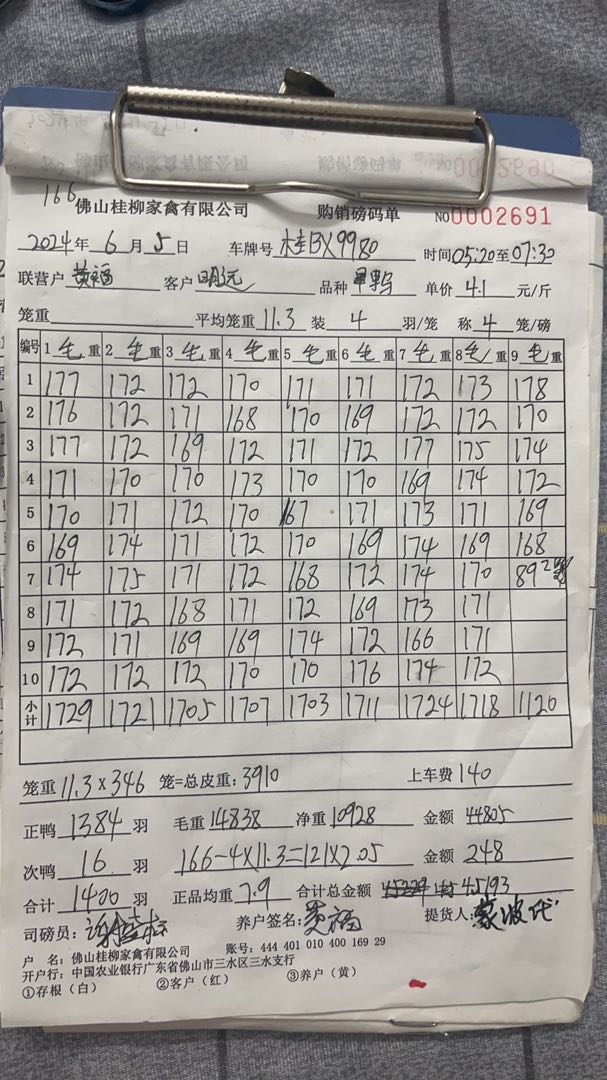 166
佛山桂柳家禽有限公司 购销磅码单 NO0002691
2024年6月5日 车牌号 桂BX9980 时间05:20至07:30
联营户 黄福 客户 明远 品种 单价 4.1 元/斤
笼重 平均笼重 11.3 装 4 羽/笼 称 4 笼/磅
编号 1毛重 2毛重 3毛重 4毛重 5毛重 6毛重 7毛重 8毛重 9毛重
1 177 172 172 170 171 171 172 173 178
2 176 172 171 168 170 169 172 172 170
3 177 172 169 172 171 172 177 175 174
4 171 170 170 173 170 170 169 174 172
5 170 171 172 170 167 171 173 171 169
6 169 174 171 172 170 169 174 169 168
7 174 175 171 172 168 172 174 170 89 2笼
8 171 172 168 171 172 169 173 171
9 172 171 169 169 174 172 166 171
10 172 172 172 170 170 176 174 172
小计 1729 1721 1705 1707 1703 1711 1724 1718 1120
笼重 11.3×346 笼=总皮重:3910 上车费 140
正鸭 1384 羽 毛重 14838 净重 10928 金额 44805
次鸭 16 羽 166-4×11.3=121×2.05 金额 248
合计 1400 羽 正品均重 7.9 合计总金额 45193
司磅员: 养户签名:黄福 提货人:
户 名:佛山桂柳家禽有限公司 账号:444 401 010 400 169 29
开户行:中国农业银行广东省佛山市三水区三水支行
①存根(白) ②客户(红) ③养户(黄)